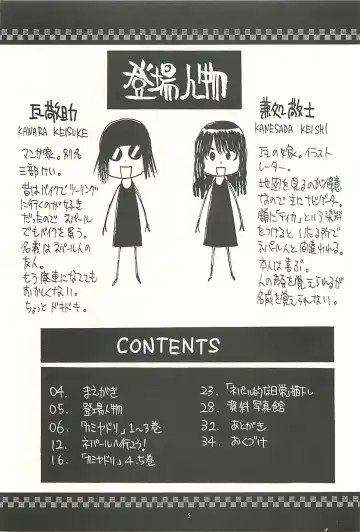 登場人物
瓦敬助
KAWARA KEISUKE
マンガ家。別名
三部けい。
昔はバイクでツーリング
に行くのが好き
だったのでネパール
でもバイクを買う。
名義はネパール人の
友人。
もう廃車になってても
おかしくない。
ちょっとドキドキ。
兼処敬士
KANESADA KEISHI
瓦の嫁。イラスト
レーター。
地図を見るのが得意
なので主にナビゲーター。
額に「ティカ」という染料
をつけると いたる所で
ネパール人と間違われる。
本人は喜ぶ。
人の顔を覚えられるが
名前を覚えられない。
CONTENTS
04. まえがき
05. 登場人物
06. 「カミヤドリ」1〜3巻
12. ネパールへ行こう!
16. 「カミヤドリ」4.5巻
23. 「ネパール的な日常」描下し
28. 資料写真館
32. あとがき
34. おくづけ
5